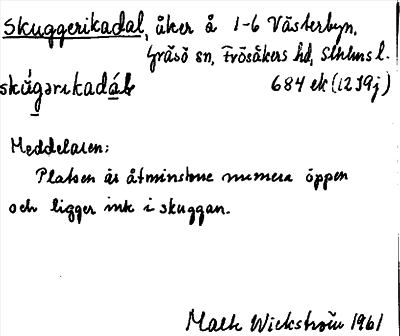 Skuggerikadal, åker å 1-6 Västerbyn,
Gräsö sn, Frösåkers hd, Sthlms l.
skúgərɩkadáḷ 684 ek (12 I9j)
Meddelaren:
Platsen är åtminstone numera öppen
och ligger inte i skuggan.
Malte Wickström 1961